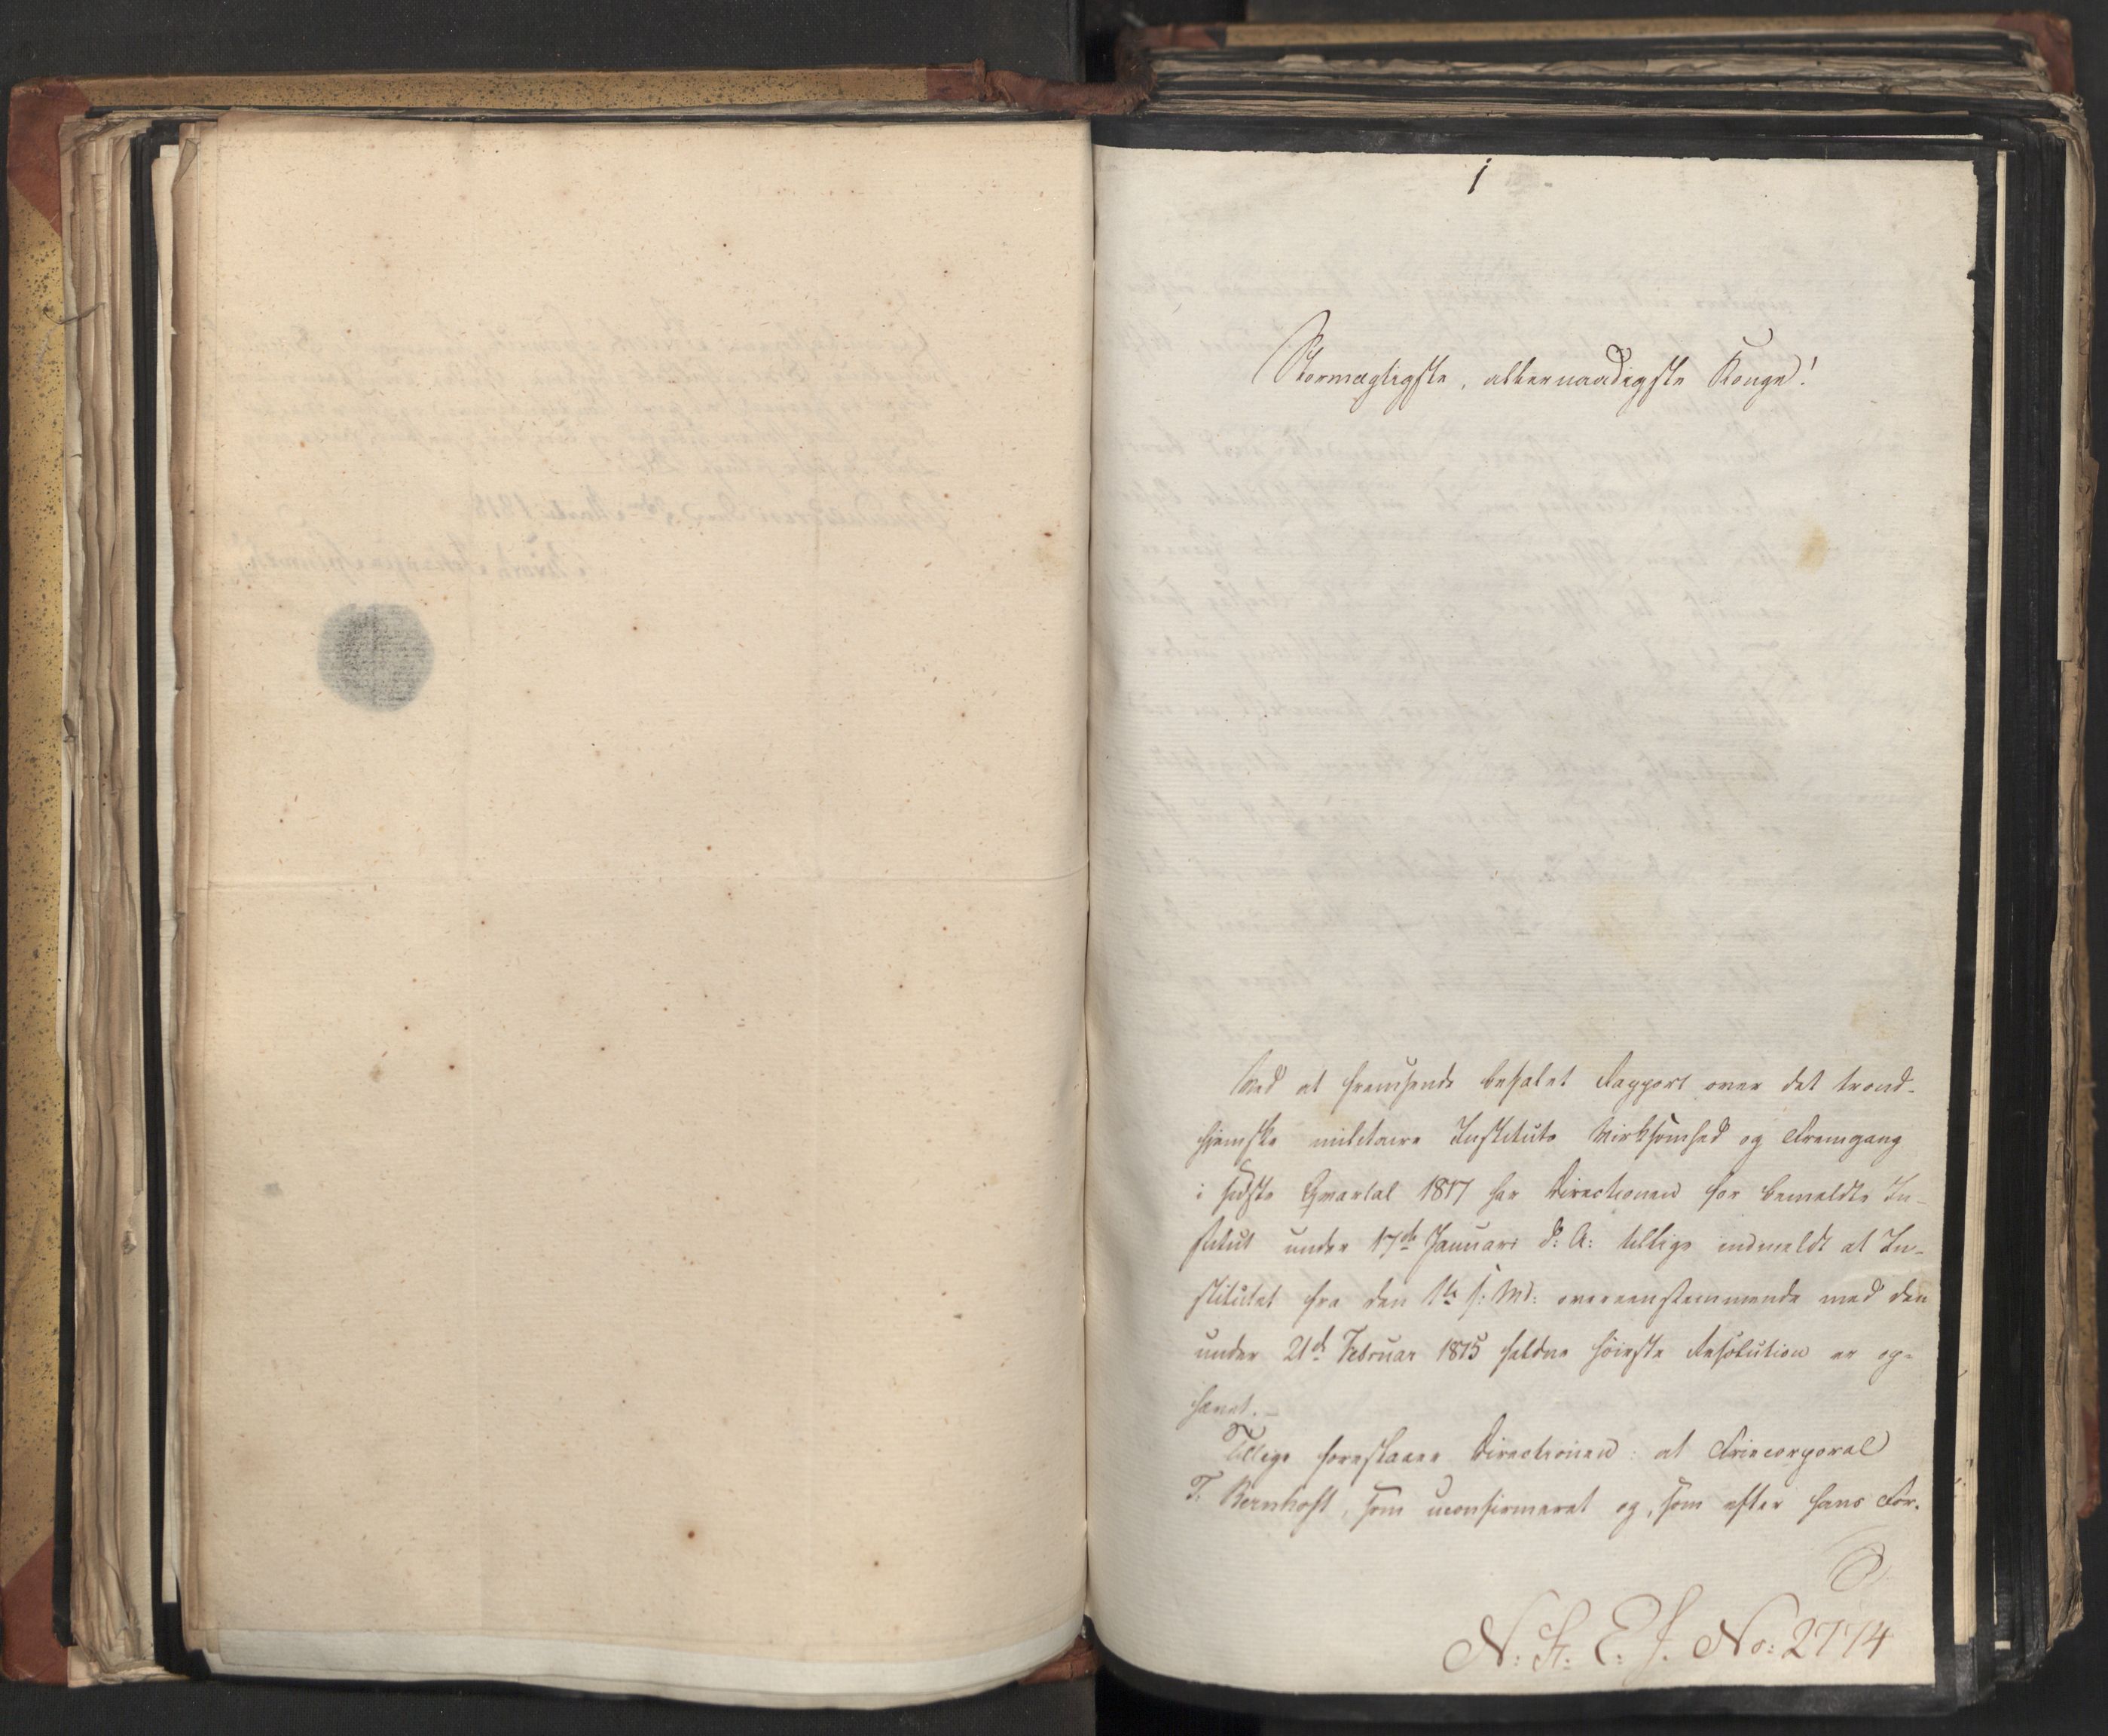 1
Stormægtigste, allernaadigste Konge!
Ved at fremsende befalet Rapport over det trond-
hjemske militaire Instituts Virksomhed og Fremgang
i sidste Qvartal 1817 har Directionen for bemeldte In-
stitut under 17de Januari d: A: tillige indmeldt at In-
stitutet fra den 1ste s: Md: overeensstemmende med den
under 21de Februar 1815 faldne høieste Resolution er op-
hævet.-
Tillige forestaaer Directionen: at Friecorporal
T. Bernhoft, som uconfirmeret og, som efter hans For-
N: St: E: J. No: 2774